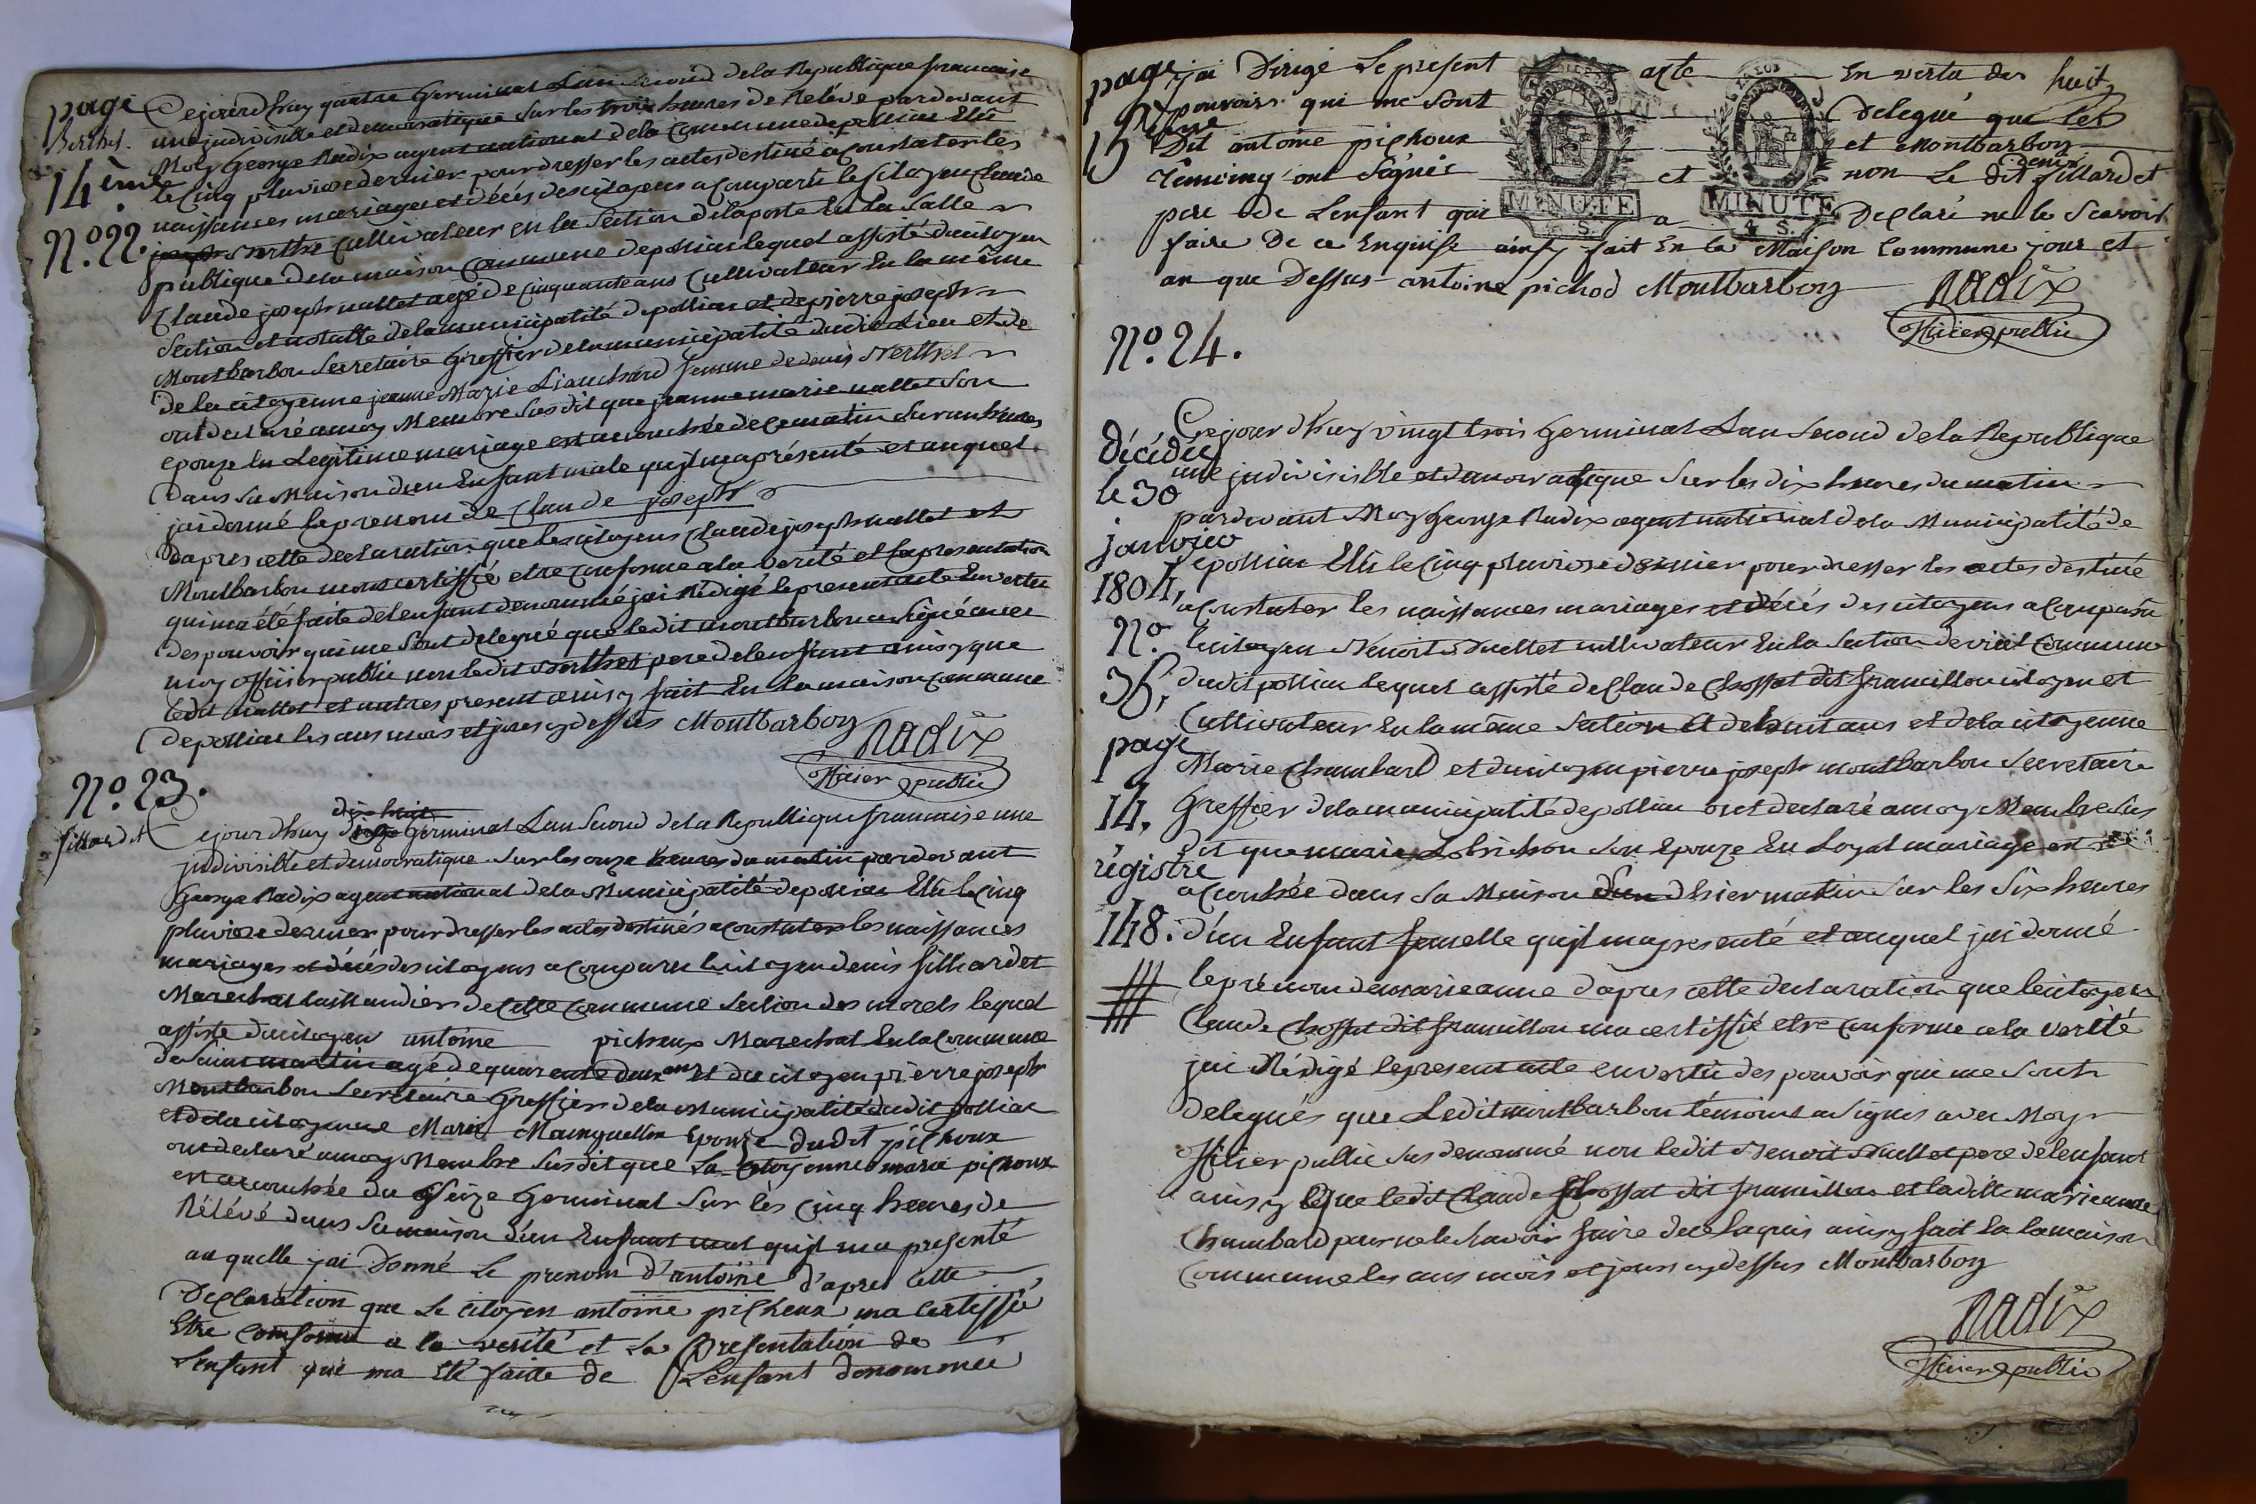 page
Berthet.
14ème
N.º 22.
Cejourdhuy quatre Germinal Lan second dela Republique francaise
une judivisible et democratique sur les trois heures de Relevé pardevant
Moy George Nadix agent national dela Commune depolliac Elû
le Cinq pluviose dernier pour dresser les actes destiné a Constater les
naissances mariages et décés descitoyens a Comparû le Citoyen Claude
joseph Berthet Cultivateur en la Section delaposte En La Salle
publique dela maison Commune depolliac lequel assisté ducitoyen
Claude joseph mallet agé de Cinquante ans Cultivateur En la même
Section et notable delamunicipatité depolliac et depierre joseph
Montbarbon Secretaire Greffier delamunicipatité dudit Lieu et de
de la citoyenne jeanne Marie Liauchard femme dedenis Berthet
ont declaré amoy Membre Susdit que jeanne marie mallet Son
epouze En Legitime mariage est acouchée decematin Sur un heures
Dans Sa Maison dun Enfant male qujl ma présenté et auquel
jai donné le prenom de Claude joseph
Dapres cette declaration que les citoyens Claude joseph mallet et
Montbarbon mont certiffié etre Conforme a la verité et la presentation
qui ma été faite del enfant denommé jai Rédigé le present acte En vertu
des pouvoir qui me Sont delegué que ledit montbarbon a Signé avec
moy officier public non ledit Berthet pere delenfant ainsy que
ledit mallet et autres present ainsy fait En la maison Commune
depolliac les ans mois et jours cy dessus Montbarboz
Nadix
officier public
N.º 23.
fillardet
dix huit
Cejourdhuy Germinal Lan Second dela Republique francaise une
judivisible et democratique Sur les onze heures du matin pardevant
George Nadix agent national dela Municipatité depolliac Elû le Cinq
pluviose dernier pour dresser les actes destinés a constater les naissances
mariages et décés des citoyens a Comparu le citoyen denis filliardet
Marechal taillandier de Cette Commune Section des morels lequel
assiste ducitoyen antoine pichoux Marechal En la Commune
de Saint martin agé de quarente deux ans et du citoyen pierre joseph
Montbarbon Secretaire Greffier dela Municipatité dudit polliac
et dela citoyenne Marie Epouze dudit pichoux
ont declaré amoy Membre Susdit que La Citoyenne marie pichoux
est acouchée du Seize Germinal Sur les Cinq heures de
Rélévé dans Sa maison d'un Enfant mal qujl ma presenté
au quelle jai Donné Le prenom d'antoine d'apres Cette
Declaration que Le Citoyen antoine picheux ma Certiffié
Etre Conforme a la verité et La Presentation de
Lenfant qui ma Eté faite de Lenfant denommée
page
15
jai Dirigé Le present acte En vertu des huit
pouvoirs qui me Sont Delegué que les
Dit antoine pichoux et Montbarboz
Témoing ont Signés et non Le dit denis fillardet
pere de Lenfant qui a Declaré ne le Scavoir
faire De ce Enquise ainsy fait En la Maison Commune jour et
an que Dessus antoine pichod Montbarboz
MINUTE
4 S.
MINUTE
4 S.
Nadix
officier public
N.º 24.
Décédée
le 30
janvier
1804,
N.º
36,
page
14,
régistre
148.
Cejourdhuy vingt trois Germinal Lan Second dela Republique
une judivisible et democratique Sur les dix heures du matin
pardevant Moy George Nadix agent national dela Municipatité de
depolliac Elû le Cinq pluviose dernier pour dresser les actes destiné
a Constater les naissances mariages et décés des citoyens a Comparu
le citoyen Benoit Buellet cultivateur En la Section de vial Commune
dudit polliac lequel assisté de Claude Chossat dit framillon citoyen et
Cultivateur En la même Section et dela citoyenne
Marie Chambard et ducitoyen pierre joseph montbarbon Secretaire
Greffier dela municipatité depolliac ont declaré a moy Membre Sus
Dit que marie Lobrichon Son Epouze En Loyal mariage est
acouchée dans Sa Maison dhier matin Sur les Six heures
d'un Enfant femelle qujl ma presenté et auquel jai donné
le prénom demarieanne d'apres cette declaration que le citoyen
Claude Chossat dit framillon ma certiffié etre Conforme a la verité
jai Rédigé le present acte en vertu des pouvoir qui me Sont
delegués que Ledit montbarbon témoins a Signés avec Moy
officier public Sus denommé non ledit Benoit Buellet pere de lenfant
ainsy que ledit Claude Chossat dit framillon et ladite marieanne
Chambard pour ne le Savoir faire dece Enquis ainsy fait En la maison
Commune les ans mois et jours cy dessus Montbarboz
Nadix
officier public